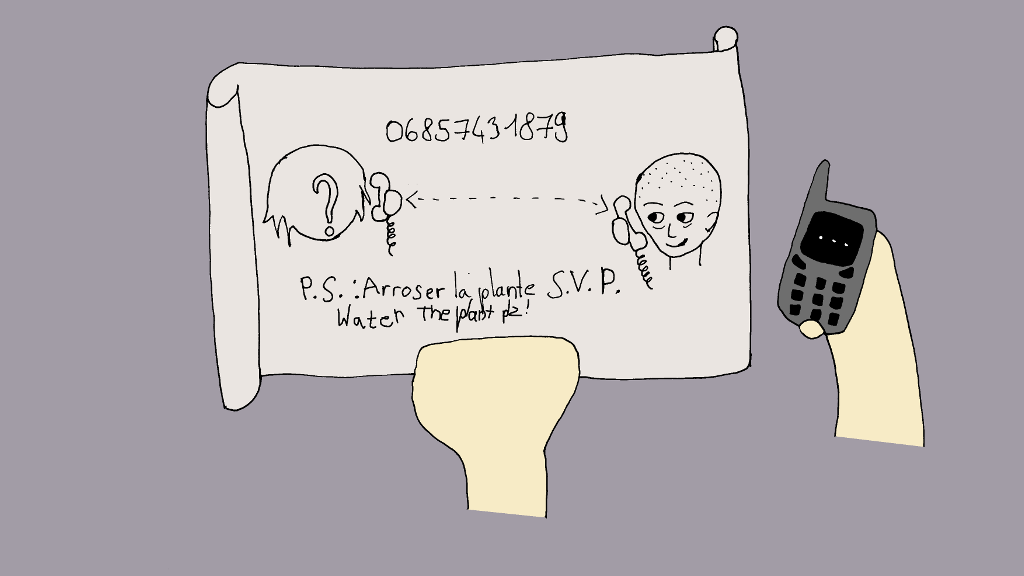 06857431879
?
P.S. : Arroser la plante S.V.P.
Water The plant plz!
...